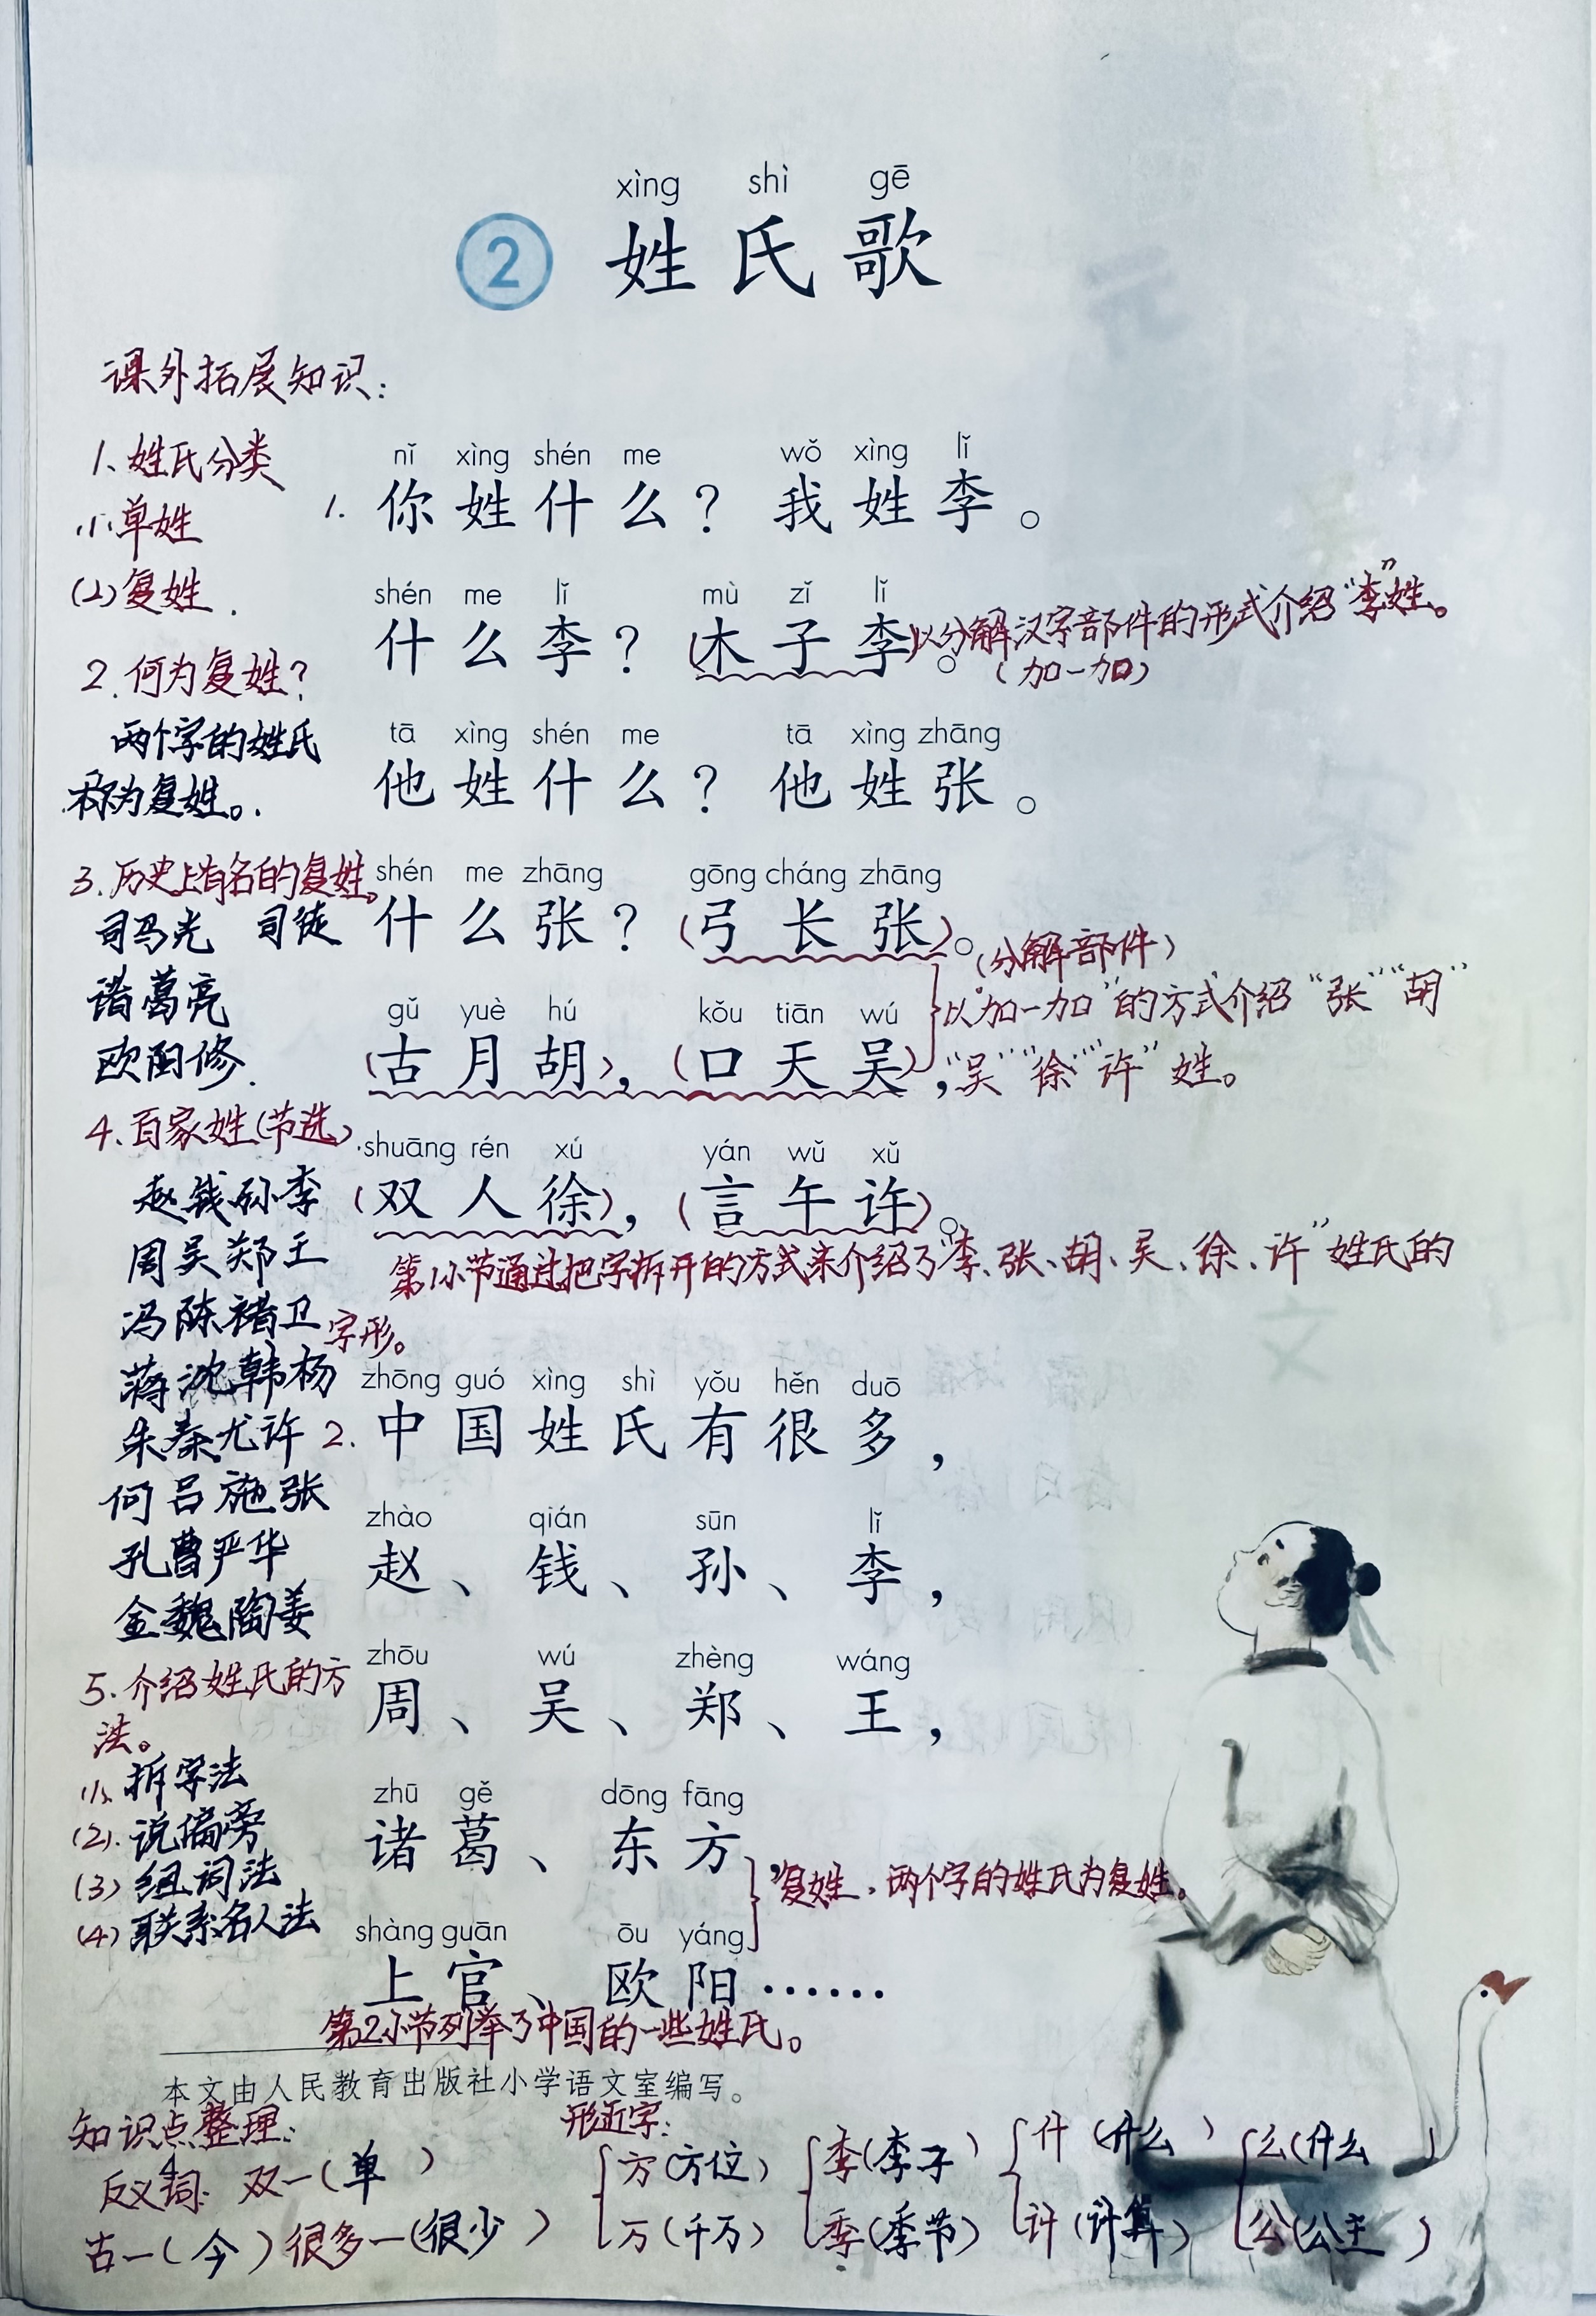 xìng shì gē
② 姓氏歌
课外拓展知识:
1、姓氏分类
(1).单姓
(2)复姓.
2.何为复姓?
两个字的姓氏
称为复姓。
3.历史上有名的复姓。
司马光 司徒
诸葛亮
欧阳修.
4.百家姓(节选)
赵钱孙李
周吴郑王
冯陈褚卫
蒋沈韩杨
朱秦尤许
何吕施张
孔曹严华
金魏陶姜
5.介绍姓氏的方
法。
(1).拆字法
(2).说偏旁
(3)组词法
(4)联系名人法
nǐ xìng shén me wǒ xìng lǐ
1. 你姓什么?我姓李。
shén me lǐ mù zǐ lǐ
什么李?(木子李)。以分解汉字部件的形式介绍“李”姓。
(加一加)
tā xìng shén me tā xìng zhāng
他姓什么?他姓张。
shén me zhāng gōng cháng zhāng
什么张?(弓长张)。
(分解部件)
以“加一加”的方式介绍“张”“胡”
gǔ yuè hú kǒu tiān wú
(古月胡),(口天吴),“吴”“徐”“许”姓。
shuāng rén xú yán wǔ xǔ
(双人徐),(言午许)。
第1小节通过把字拆开的方式来介绍了“李、张、胡、吴、徐、许”姓氏的
字形。
zhōng guó xìng shì yǒu hěn duō
2. 中国姓氏有很多,
zhào qián sūn lǐ
赵、钱、孙、李,
zhōu wú zhèng wáng
周、吴、郑、王,
zhū gě dōng fāng
诸葛、东方,
复姓,两个字的姓氏为复姓。
shàng guān ōu yáng
上官、欧阳……
第2小节列举了中国的一些姓氏。
本文由人民教育出版社小学语文室编写。
知识点整理:
反义词: 双—(单)
古—(今) 很多—(很少)
形近字:
方(方位) 李(李子) 什(什么) 么(什么)
万(千万) 季(季节) 计(计算) 公(公主)